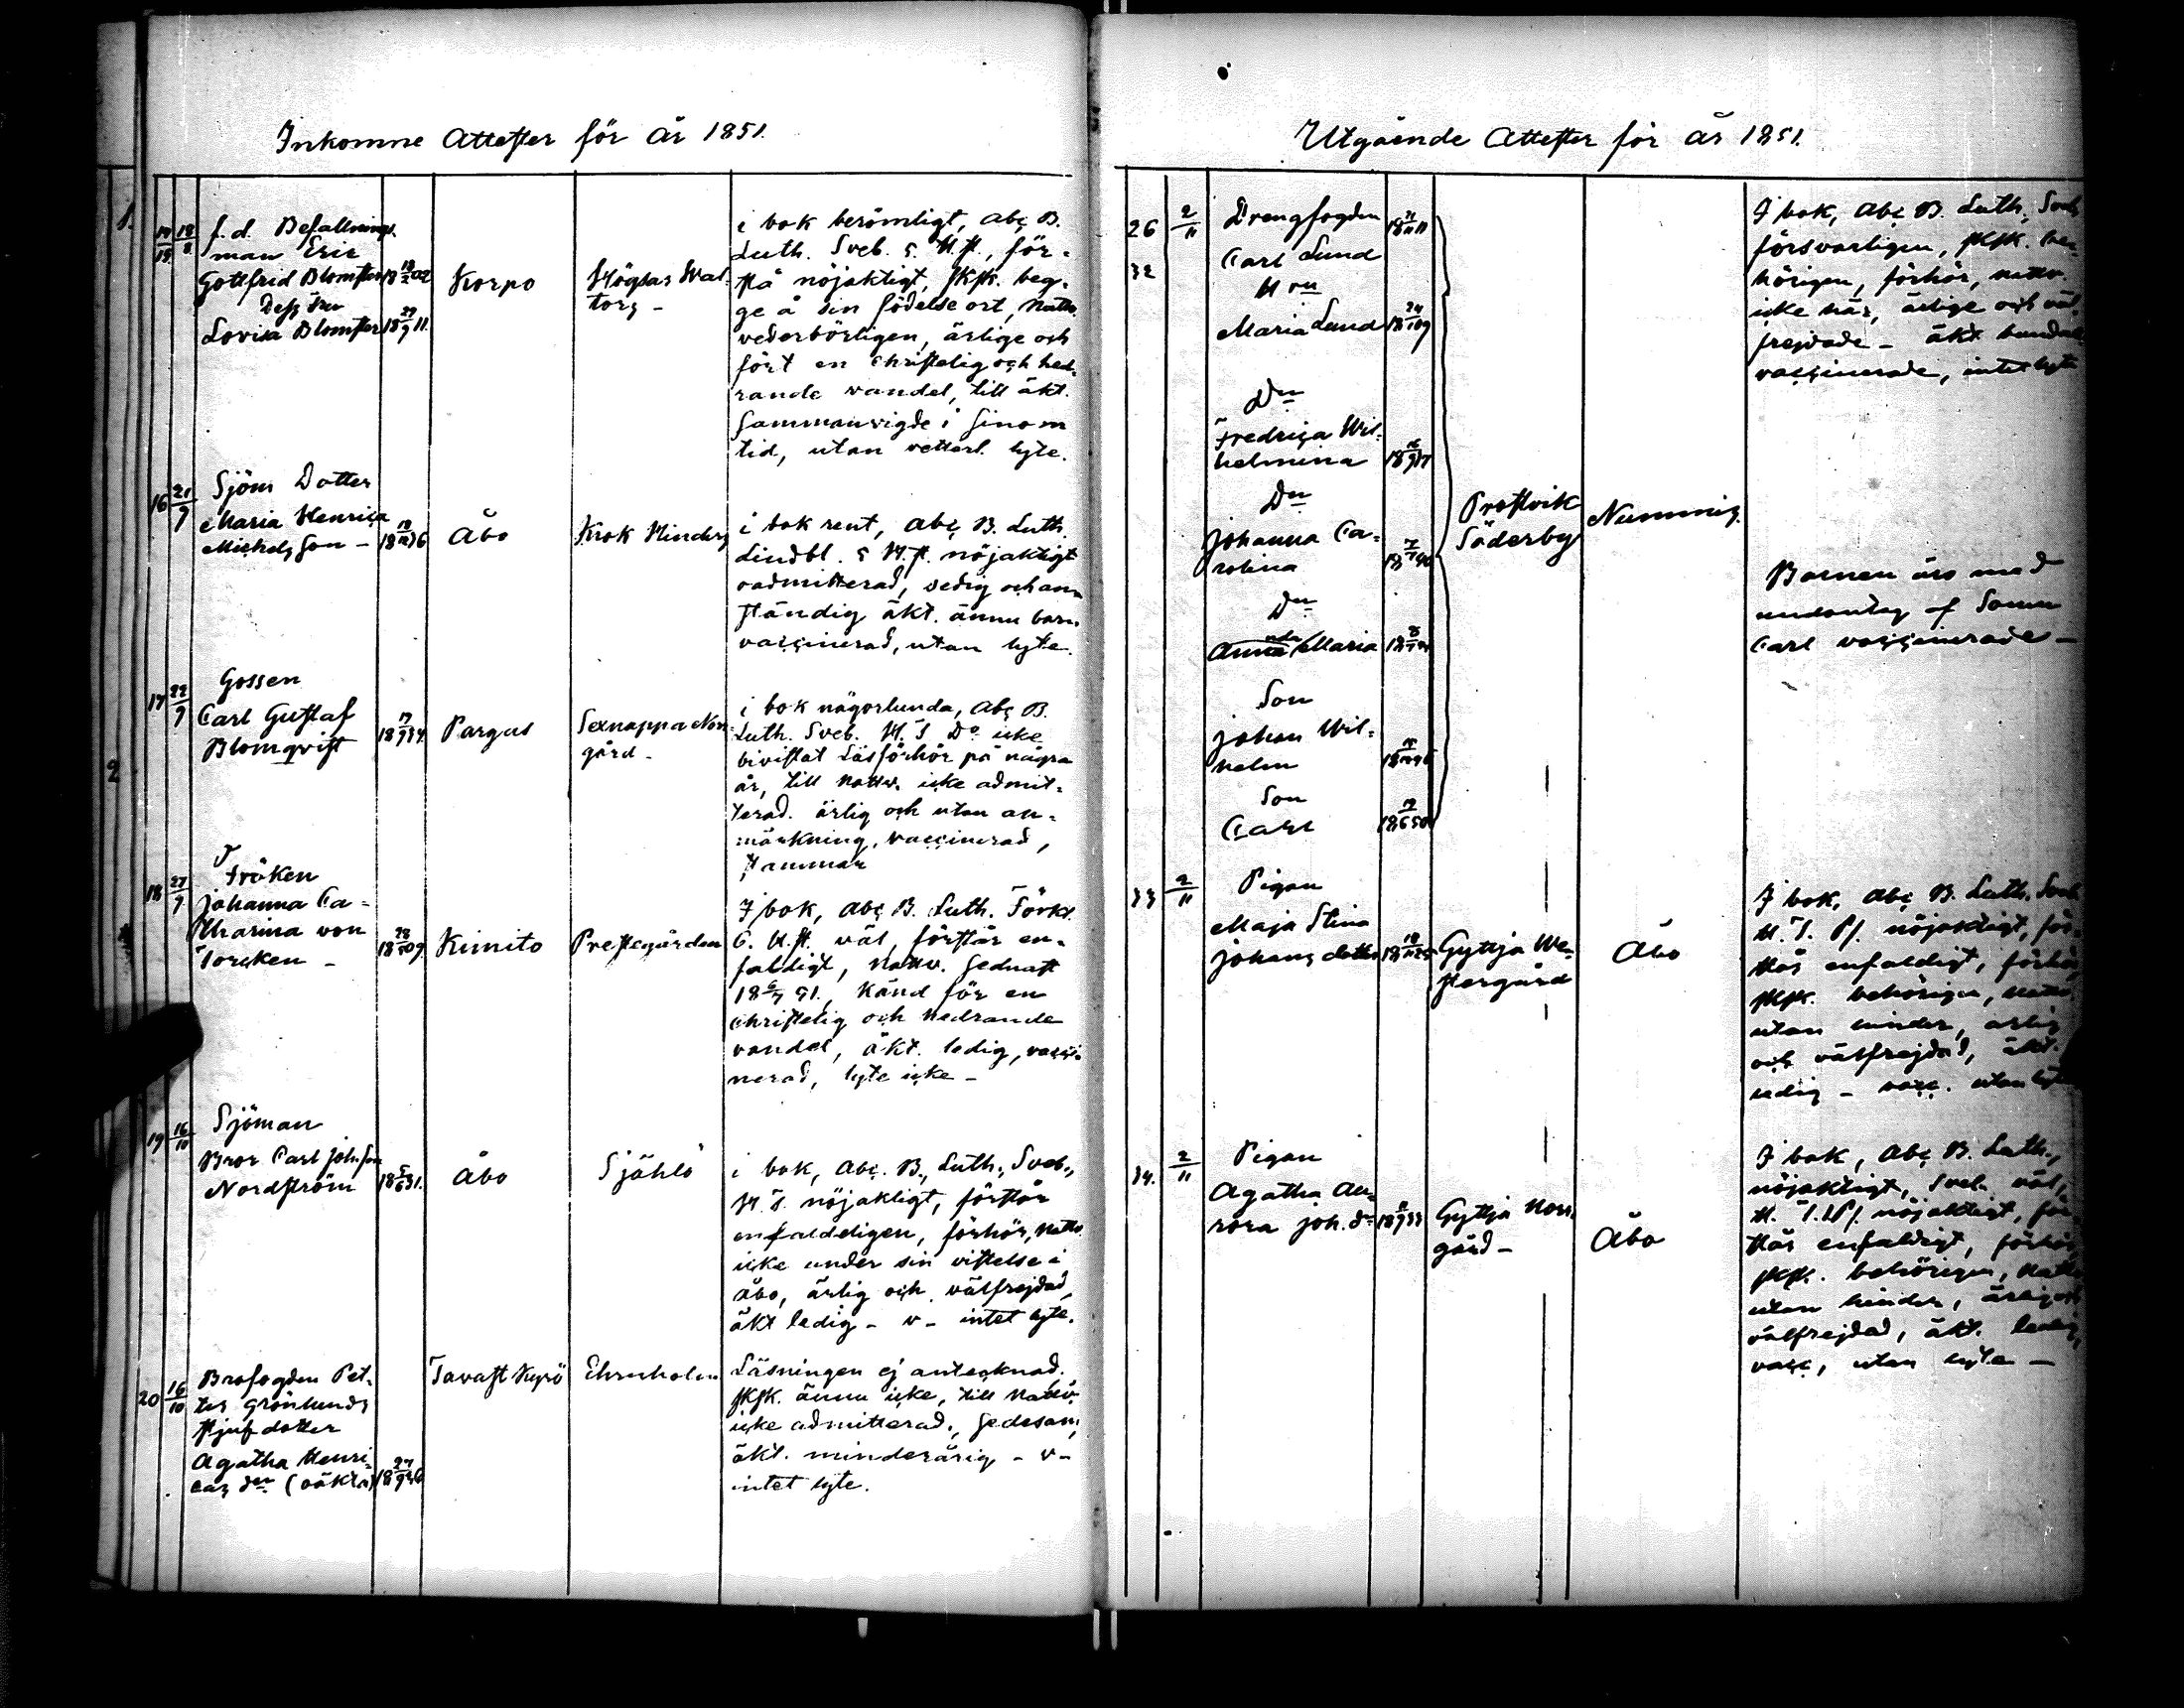 Inkomne Attester för år 1851.
14 15 18/8
f.d. Befallnings-
man Eric
Gottfrid Blomster 18 18/2 02
Dess fru
Lovisa Blomster 18 29/9 11.
Korpo
Högsar Wal-
torg -
i bok berömligt, Abc B.
Luth. Sveb. 5. H.st., för-
stå nöjaktigt, skpk. beg-
ge å sin födelse ort, nattv.
vederbörligen, ärlige och
fört en christelig och hed-
rande vandel, till äkt.
sammanvigde i sinom
tid, utan vetterl. lyte.
16 21/9
Sjöm Dotter
Maria Henrica
Michelsson -
Åbo
Krok Hinders
i bok rent, Abc B. Luth.
Lindbl. 5 H.st. nöjaktigt
oadmitterad, sedig och an-
ständig äkt. ännu barn,
vaccinerad, utan lyte.
17 22/9
Gossen
Carl Gustaf
Blomqvist
18 19/9 34.
Pargas
Sexnappa Norr-
gård -
i bok någorlunda, Abc B.
Luth. Sveb. H.T Do icke
bivistat Läsförhör på några
år, till nattv. icke admit-
terad. ärlig och utan an-
märkning, vaccinerad,
stammar
18 27/9
Fröken
Johanna Ca-
tharina von
Torcken -
Kimito
Prestegården
I bok, Abc B. Luth. Förkl.
6. H.st. väl, förstår en-
faldigt, nattv. sednast
18 6/7 51. Känd för en
christelig och hedrande
vandel, äkt. ledig, vacci-
nerad, lyte icke -
19 16/10
Sjöman
Bror Carl Johsson
Nordström
18 5/6 31.
Åbo
Själö
i bok, Abc. B., Luth., Sveb.,
H.T. nöjaktigt, förstår
enfaldeligen, förhör, nattv.
icke under sin vistelse i
Åbo, ärlig och välfrejdad,
äkt ledig - v - intet lyte.
20 16/10
Brofogden Pet-
ter Grönlunds
stjufdotter
Agatha Henri-
cas dr. (oäkta) 18 27/9 46
Tavast Kyrö
Ehrnholm
Läsningen ej antecknad.
skpk. ännu icke, till nattv.
icke admitterad, sedesam,
äkt. minderårig - v -
intet lyte.
Utgående Attester för år 1851.
26 32 2/11
Drengfogden
Carl Lund
Hru
Maria Lund
Dr
Fredrica Wil-
helmina
Dr
Johanna Ca-
rolina
Dr
Anna Maria
Son
Johan Wil-
helm
Son
Carl
Prostvik
Söderby
Nummis.
I bok, Abc B. Luth. Sveb
försvarligen, skpk. be-
hörigen, förhör, nattv.
icke här, ärlige och väl-
frejdade - äkt bundne
vaccinerade, intet lyte
Barnen äro med
undantag af Sonen
Carl vaccinerade -
33 2/11
Pigan
Maja Stina
Johans dotter
Gyttja We-
stergård
Åbo
I bok, Abc B. Luth. Sveb
H.T. Ps. nöjaktigt, för-
står enfaldigt, förhör,
skpk. behörigen, nattv.
utan hinder, ärlig
och välfrejdad, äkt.
ledig - vacc. utan lyte
34. 2/11
Pigan
Agatha Au-
rora Joh. dr
Gyttja Norr-
gård -
Åbo
I bok, Abc B. Luth.,
nöjaktigt, Sveb. väl,
H. T. Ps. nöjaktigt, för-
står enfaldigt, förhör,
skpk. behörigen, nattv.
utan hinder, ärlig och
välfrejdad, äkt. ledig,
vacc, utan lyte -